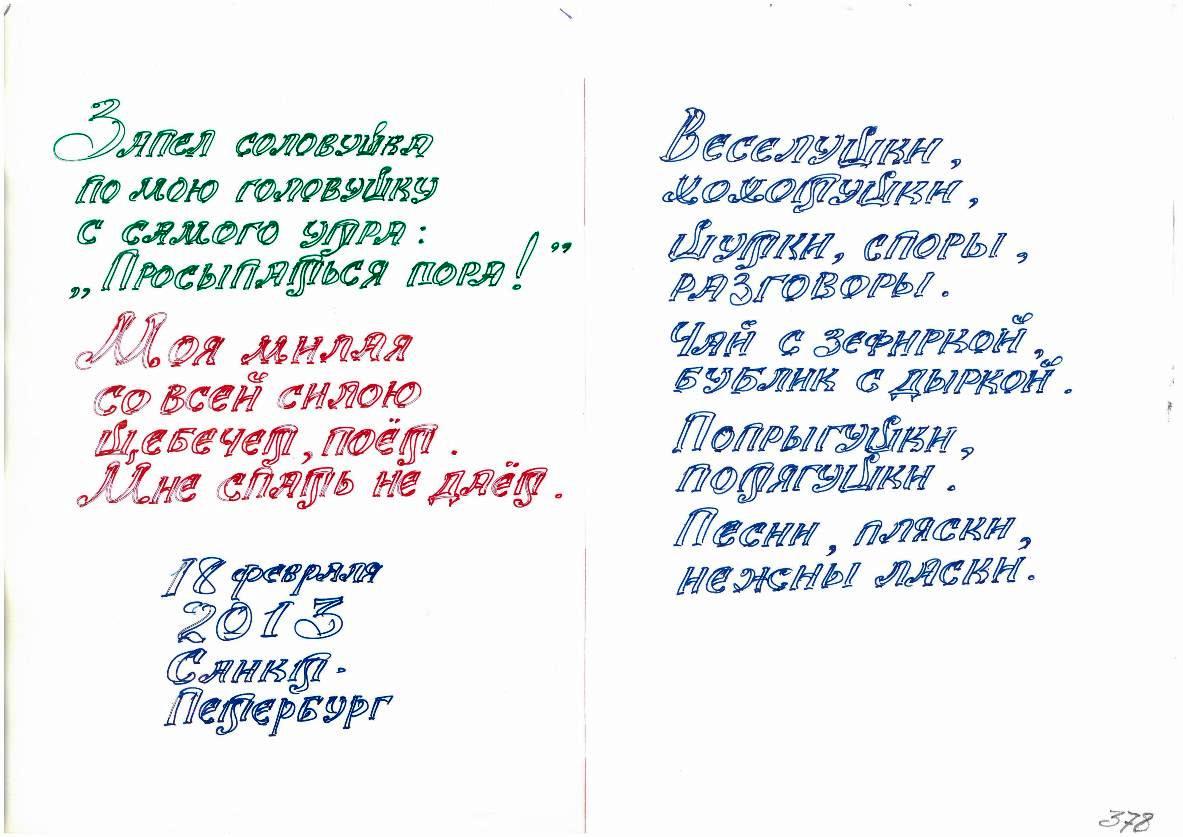 Запел соловушка
по мою головушку
с самого утра:
„Просыпаться пора!”
Моя милая
со всей силою
щебечет, поёт.
Мне спать не даёт.
18 февраля
2013
Санкт-
Петербург
Веселушки,
хохотушки,
шутки, споры,
разговоры.
Чай с зефиркой,
бублик с дыркой.
Попрыгушки,
потягушки.
Песни, пляски,
нежны ласки.
378